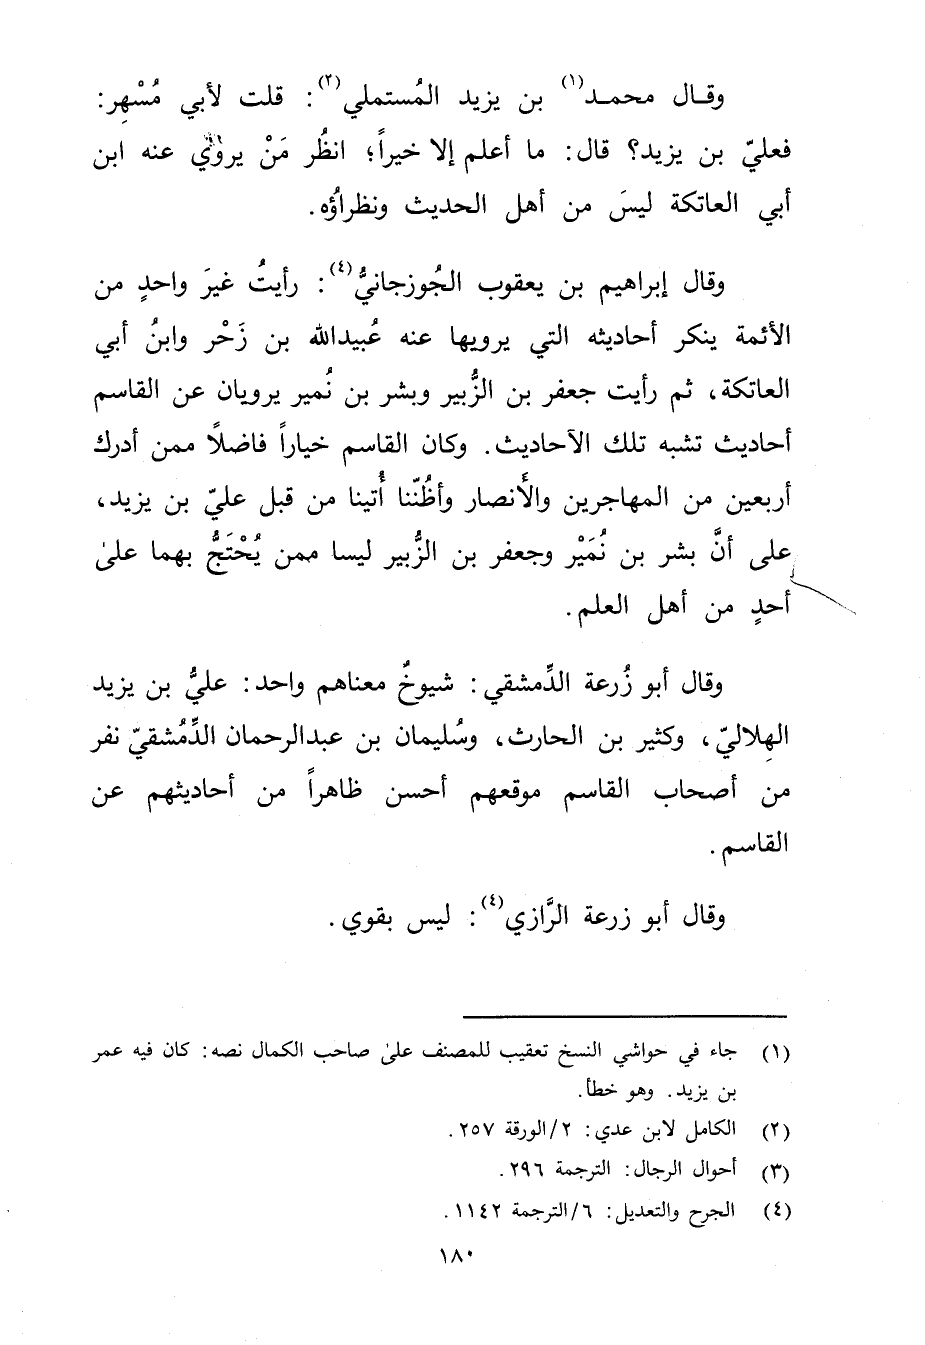 وقـال محمـد(١) بن يزيد المُستملي(٢): قلت لأبي مُسْهِر:
فعليّ بن يزيد؟ قال: ما أعلم إلا خيراً؛ انظُر مَنْ يروي عنه ابن
أبي العاتكة ليسَ من أهل الحديث ونظراؤُه.
وقال إبراهيم بن يعقوب الجُوزجانيُّ(٤): رأيتُ غيرَ واحدٍ من
الأئمة ينكر أحاديثه التي يرويها عنه عُبيدالله بن زَحْر وابنُ أبي
العاتكة، ثم رأيت جعفر بن الزُّبير وبشر بن نُمير يرويان عن القاسم
أحاديث تشبه تلك الآحاديث. وكان القاسم خياراً فاضلًا ممن أدرك
أربعين من المهاجرين والأَنصار وأظُنّنا أُتينا من قبل عليّ بن يزيد،
على أنَّ بشر بن نُمَيْر وجعفر بن الزُّبير ليسا ممن يُحْتَجُّ بهما علىٰ
أحدٍ من أهل العلم.
وقال أبو زُرعة الدِّمشقي: شيوخٌ معناهم واحد: عليُّ بن يزيد
الهِلاليّ، وكثير بن الحارث، وسُليمان بن عبدالرحمان الدِّمُشقيّ نفر
من أصحاب القاسم موقعهم أحسن ظاهراً من أحاديثهم عن
القاسم.
وقال أبو زرعة الرَّازي(٤): ليس بقوي.
(١) جاء في حواشي النسخ تعقيب للمصنف علىٰ صاحب الكمال نصه: كان فيه عمر
بن يزيد. وهو خطأ.
(٢) الكامل لابن عدي: ٢/الورقة ٢٥٧.
(٣) أحوال الرجال: الترجمة ٢٩٦.
(٤) الجرح والتعديل: ٦/الترجمة ١١٤٢.
١٨٠